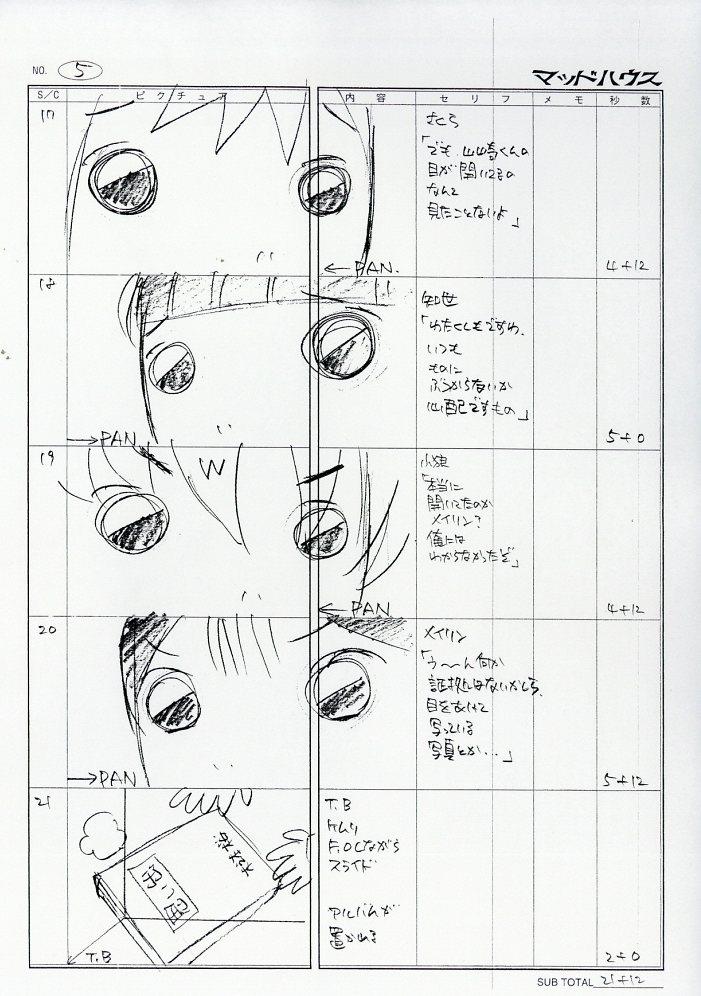 NO. 5
マッドハウス
S/C ピクチュア 内容 セリフ メモ 秒数
17
さくら
「でも、山崎くんの
目が開いてるの
なんて
見たことないよ」
← PAN.
4+12
18
知世
「わたくしもですわ、
いつも
ものに
ぶつからないか
心配ですもの」
→ PAN
5+0
19
小狼
「本当に
開いてたのか
メイリン？
俺には
わからなかったぞ」
← PAN
4+12
20
メイリン
「う〜〜ん何か
証拠はないかしら、
目をあけて
写っている
写真とか…」
→ PAN
5+12
21
思い出
T.B
T.B
ケムリ
F.Oしながら
スライド
アルバムが
置かれる
2+0
SUB TOTAL 21+12